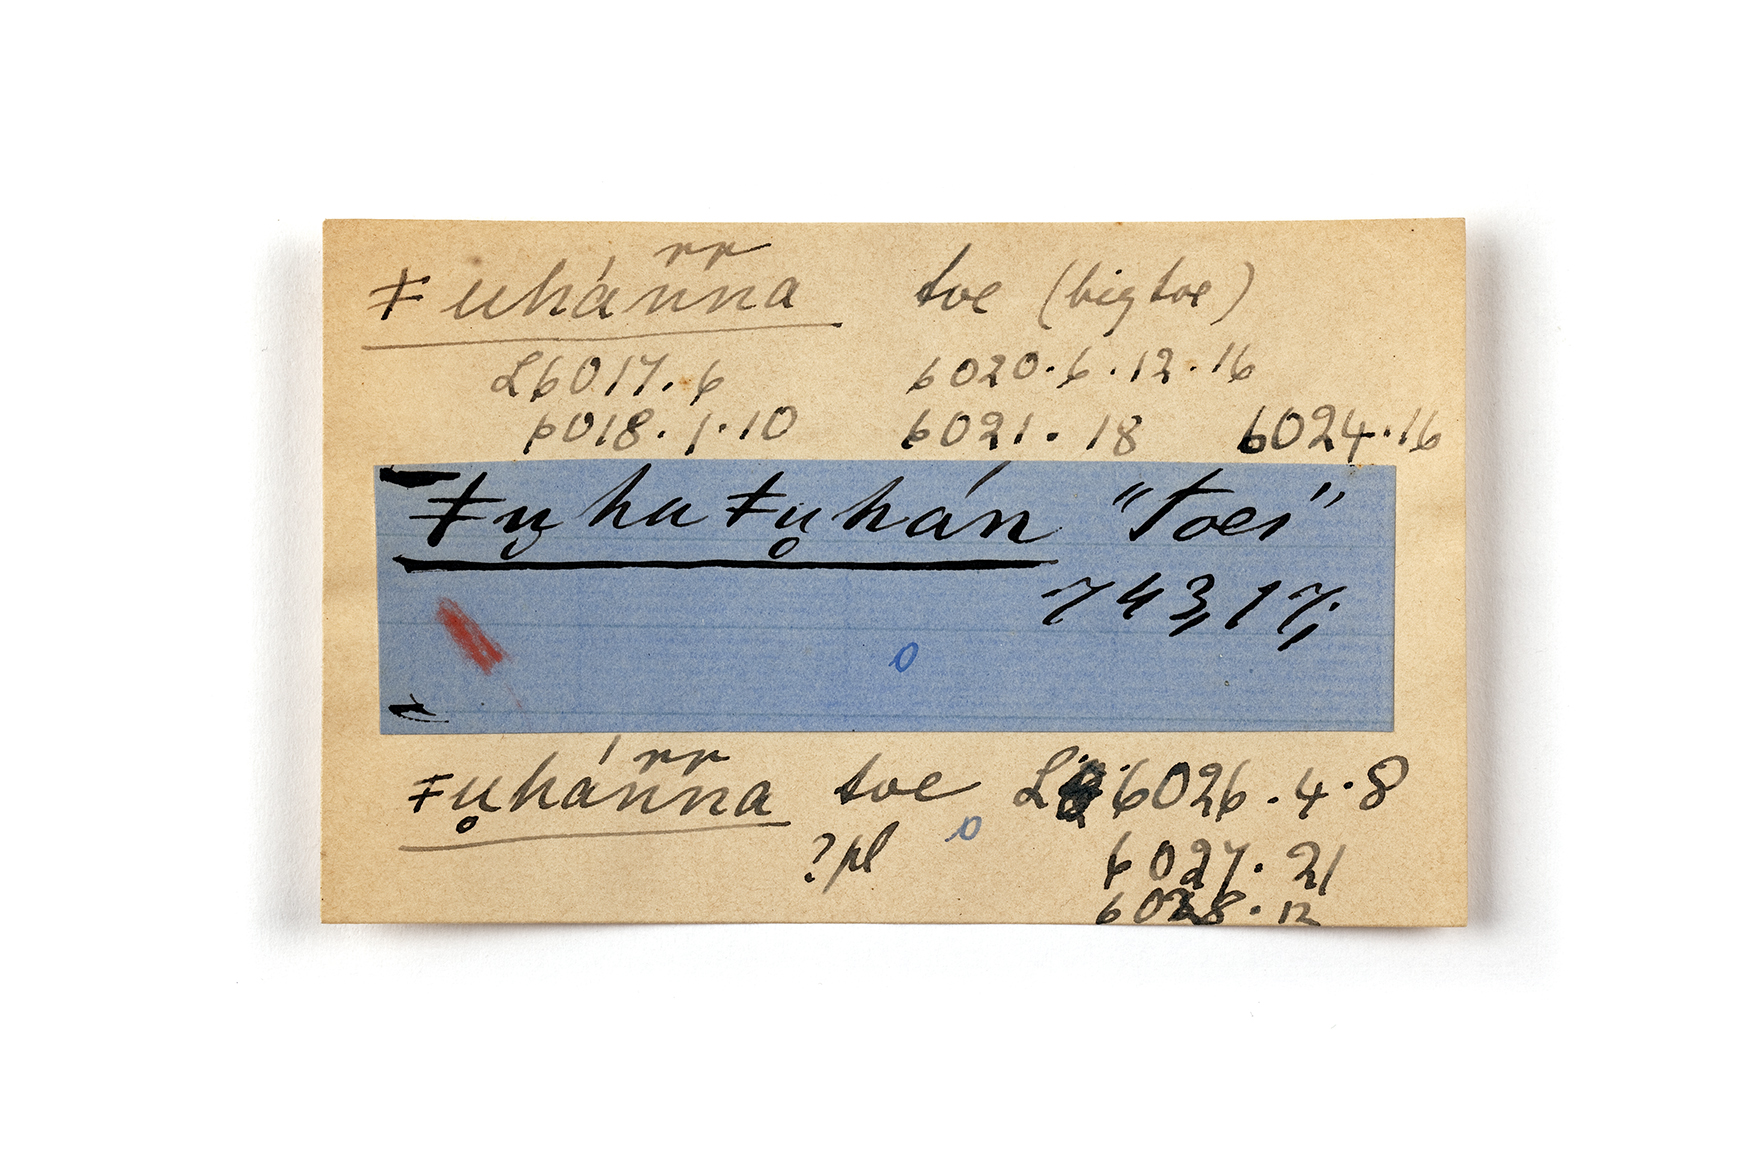 ǂuhánna toe (big toe)
rr
L6017.6 6020.6.12.16
6018.1.10 6021.18 6024.16
ǂu̥hu ǂu̥hán "Toes"
743,17;
o
ǂu̥hánna toe L 6026.4.8
rr
?pl o 6027.21
6028.12